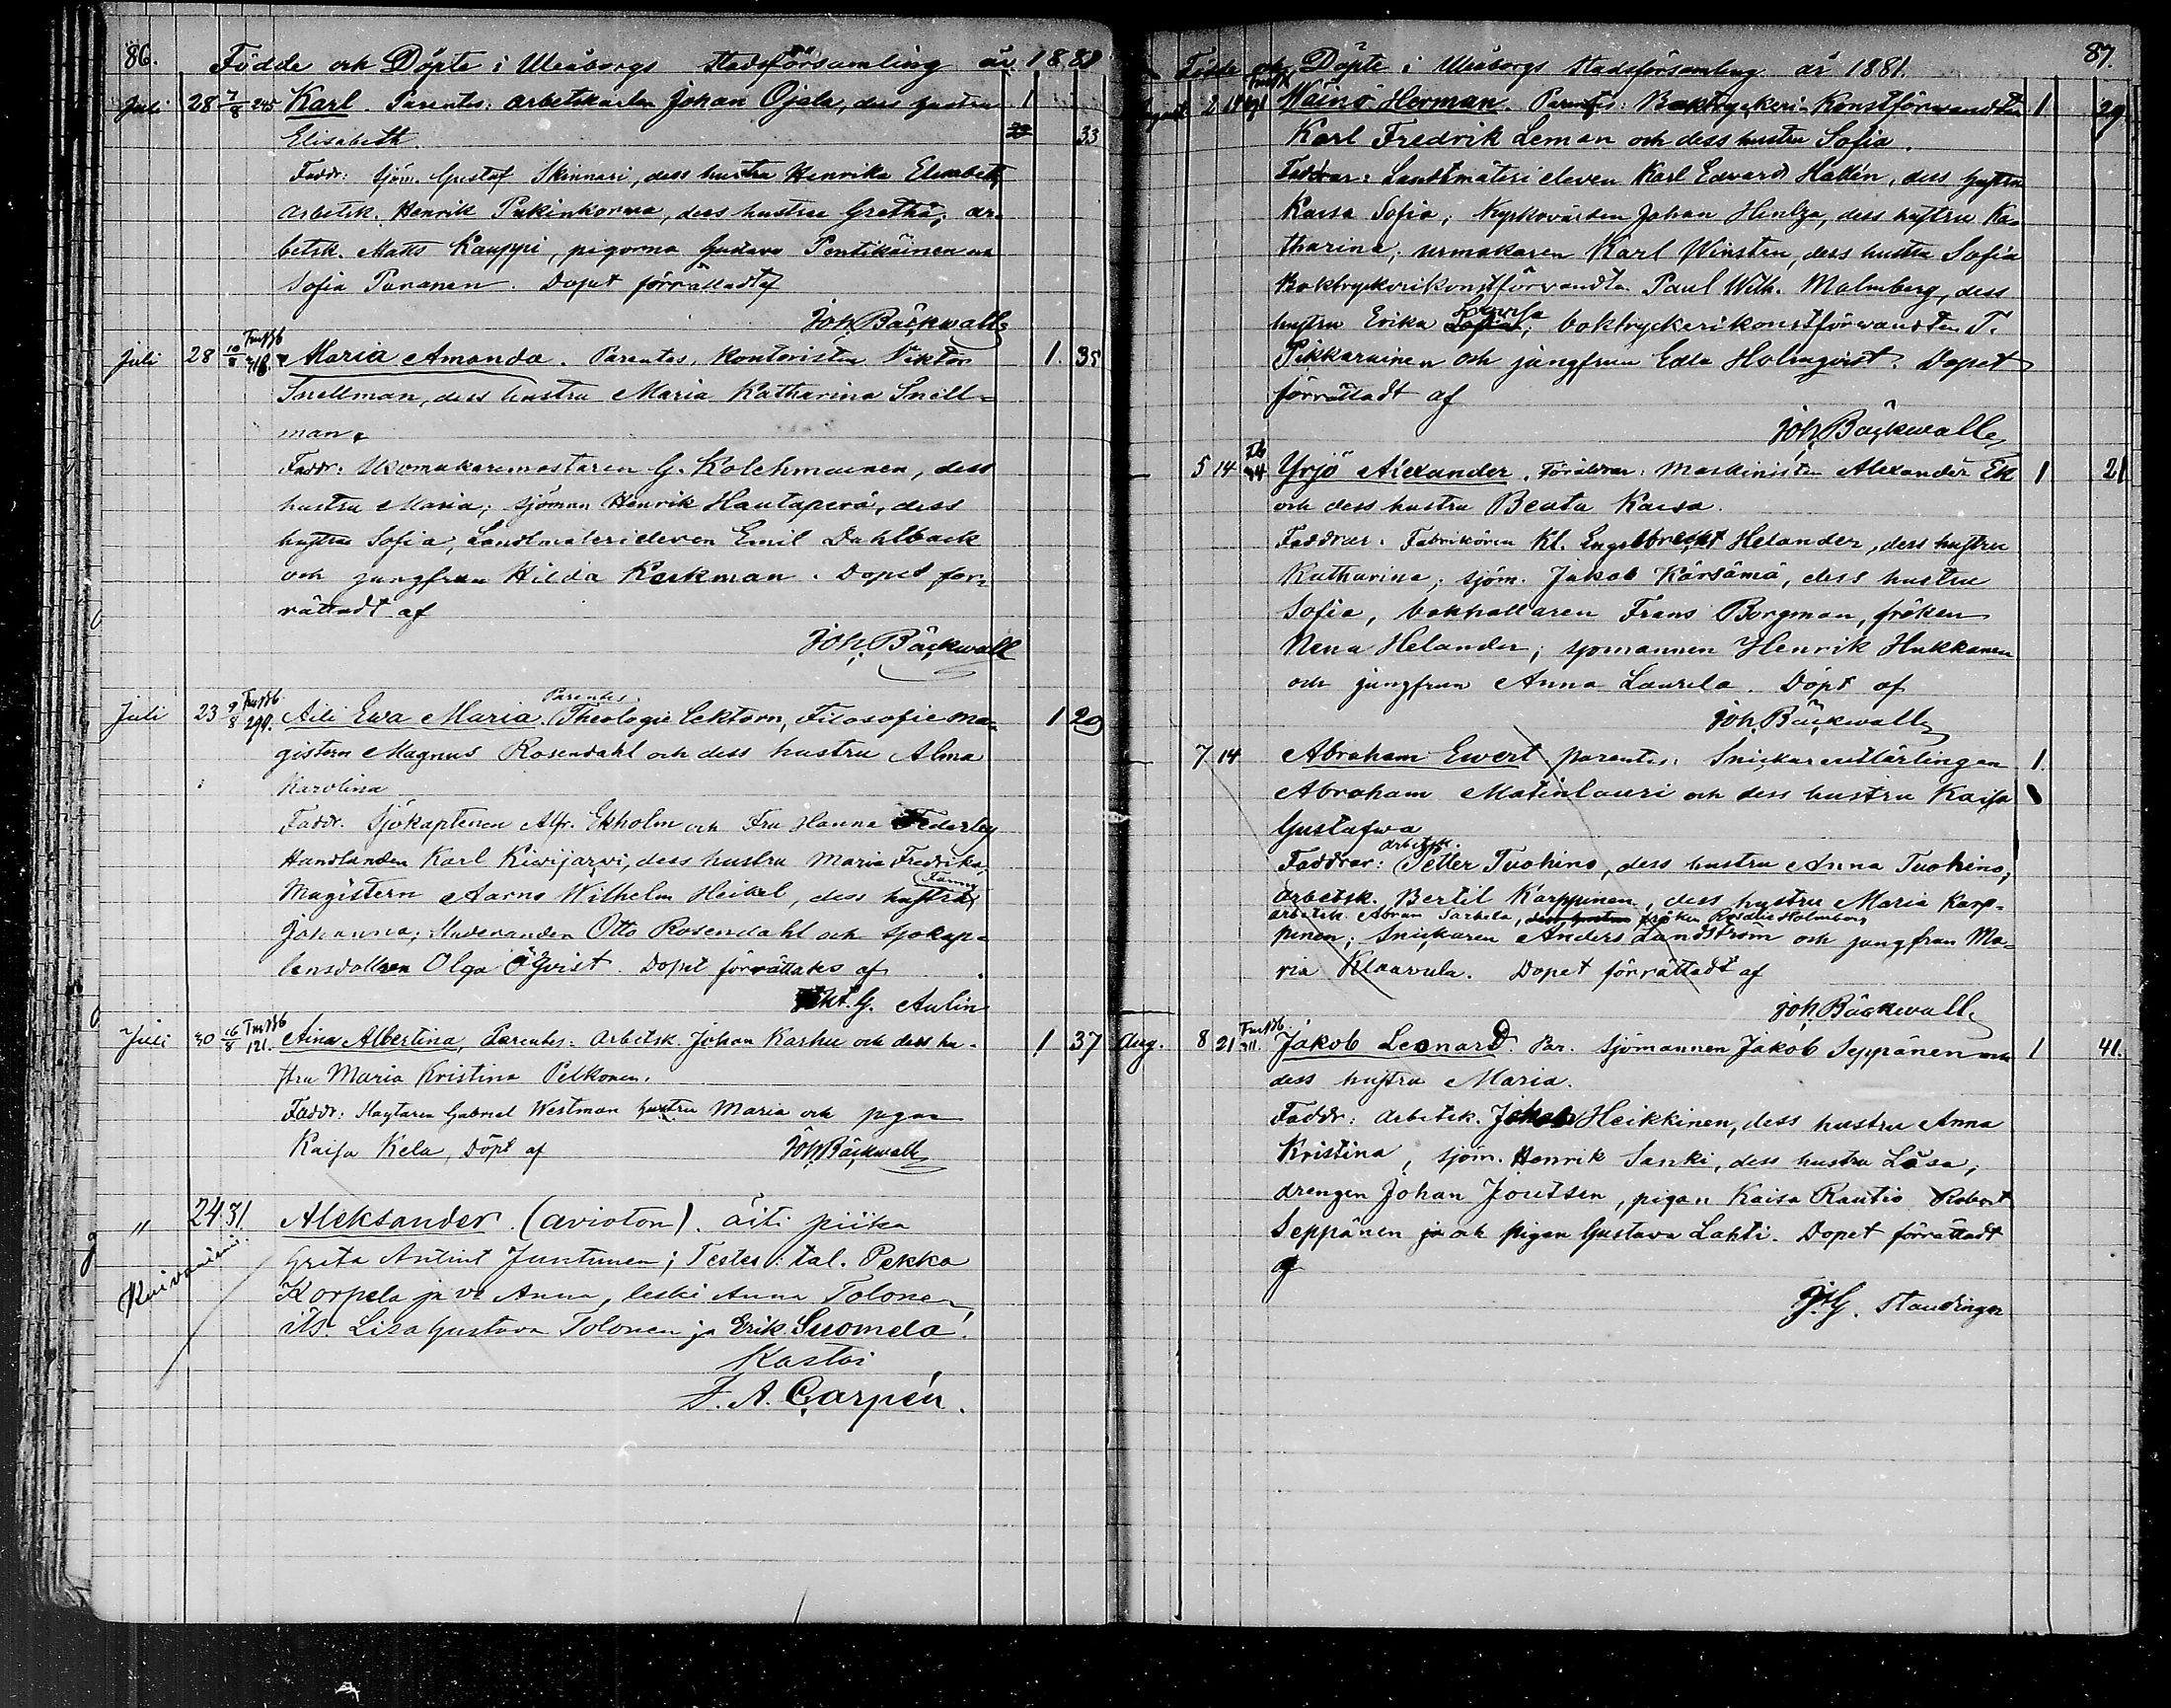 86.
Födde och Döpte i Uleåborgs Stadsförsamling år 1881
Juli 28 7/8 245 Karl. Parentes: arbetskarlen Johan Ojala, dess hustru 1
Elisabeth. 33
Faddr: Sjöm. Gustaf Skinnari, dess hustru Henrika Elisabeth,
arbetsk. Henrik Pukinkorva, dess hustru Gretha; ar-
betsk. Matts Kauppi, pigorna Gustava Pentikäinen och
Sofia Paranen. Dopet förrättadt af
Joh. Bäckwall
Juli 28 10/8 Maria Amanda. Parentes. Kontoristen Viktor 1. 35
Snellman, dess hustru Maria Katharina Snell-
man.
Faddr: Uromakaremästaren G. Kolehmainen, dess
hustru Maria; sjöman Henrik Hautaperä, dess
hustru Sofia; Landtmäterieleven Emil Dahlback
och jungfrun Hilda Keckman. Dopet för-
rättadt af
Joh. Bäckwall
Juli 23 9/8 299. Aili Ewa Maria. Parentes. Theologie lektorn, Filosofie ma- 1 29
gistern Magnus Rosendahl och dess hustru Alma
Karolina
Faddr. Sjökaptenen Alfr. Ekholm och Fru Hanna Federley
Handlanden Karl Kiwijärvi, dess hustru Maria Fredrika,
Magistern Aarno Wilhelm Heikel, dess hustru Fanny
Johanna; Studeranden Otto Rosendahl och Sjökap-
tensdottren Olga Öqvist. Dopet förrättades af
G. Aulin
Juli 30 16/8 121. Aina Albertina, Parentes: Arbetsk. Johan Karhu och dess hu- 1 37
stru Maria Kristina Pelkonen.
Faddr: Slagtaren Gabriel Westman hustru Maria och pigan
Kaisa Kela, Döpt af Joh. Bäckwall
" 24. 31. Aleksander. (avioton). äiti piika
Greta Antint Juntunen; Testes: tal. Pekka
Korpela ja vo Anna, leski Anna Tolonen,
its. Lisa Gustava Tolonen ja Erik Suomela.
Kastoi
F. A. Carpén.
87.
Födde och Döpte i Uleåborgs Stadsförsamling år 1881.
August 2 14 Wäinö Herman. Parentes: Boktryckeri-Konstförvandten 1 29
Karl Fredrik Leman och dess hustru Sofia.
Faddrar: Landtmäteri eleven Karl Edvard Hallén, dess hustru
Kaisa Sofia; Kyrkovärden Johan Hintza, dess hustru Ka-
tharina; urmakaren Karl Winsten, dess hustru Sofia
Boktryckerikonstförvandten Paul Wilh. Malmberg, dess
hustru Erika Lovisa; boktryckerikonstförvandten T.
Pikkarainen och jungfrun Edla Holmqvist. Dopet
förrättadt af
Joh. Bäckwall
5 14 Yrjö Alexander. Föräldrar: Maskinisten Alexander Ek 1 21
och dess hustru Beata Kaisa.
Faddrar: Fabrikören Kl. Engelbrecht Helander, dess hustru
Katharina; sjöm. Jakob Kärsämä, dess hustru
Sofia, bokhållaren Frans Borgman, fröken
Nena Helander; sjömannen Henrik Hukkanen
och jungfrun Anna Laurila. Döpt af
Joh. Bäckwall
7 14 Abraham Ewert parentes: Snickareutlärlingen 1.
Abraham Matinlauri och dess hustru Kaisa
Gustafwa
Faddrar: arbetsk. Petter Tuohino, dess hustru Anna Tuohino;
Arbetsk. Bertil Karppinen, dess hustru Maria Karp-
arbetsk. Abram Sarkela, dess hustru fröken Rosalie Holmberg
pinen; Snickaren Anders Landström och jungfrun Ma-
ria Klaavula. Dopet förrättadt af
Joh. Bäckwall
Aug. 8 21 Jakob Leonard. Par. Sjömannen Jakob Seppänen och 1 41.
dess hustru Maria.
Faddr: Arbetsk. Jakob Heikkinen, dess hustru Anna
Kristina, sjöm. Henrik Sanki, dess hustru Lisa;
drengen Johan Joutsen, pigan Kaisa Rautio Robert
Seppänen ja och pigan Gustava Lahti. Dopet förrättadt
af
Standinger